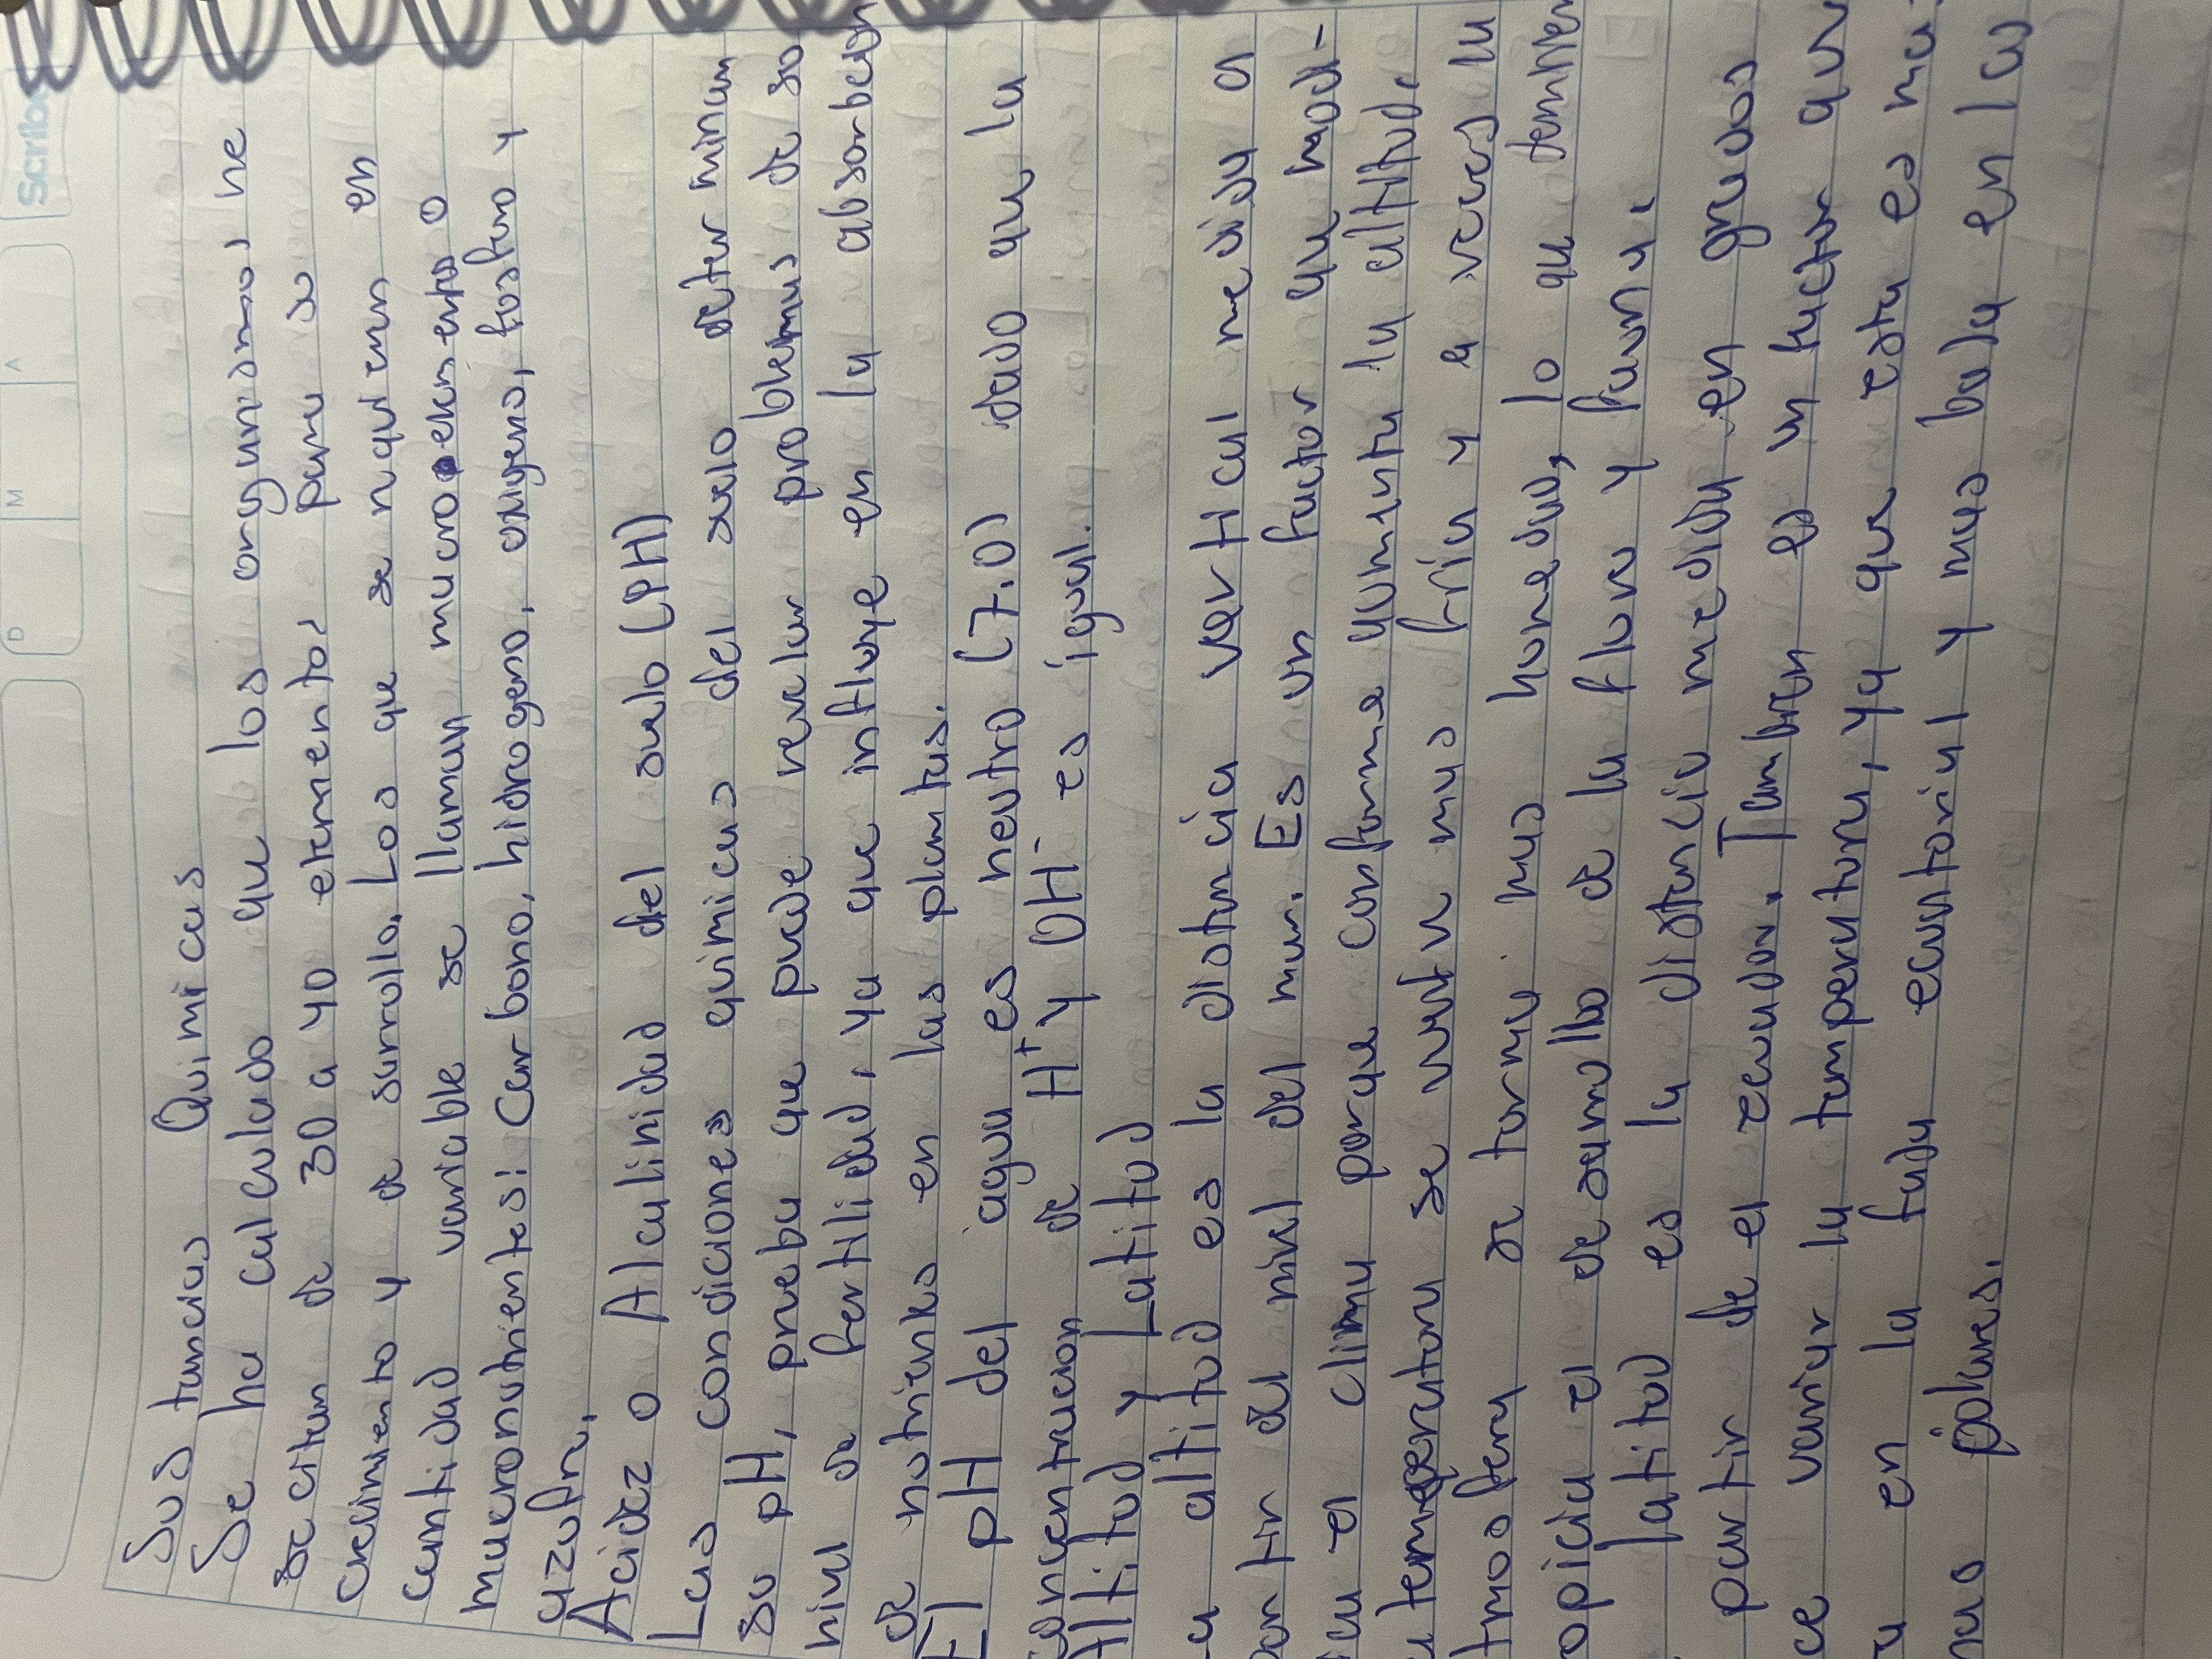 Scribe
D M A
Sus tancias Quimicas
Se ha calculado que los organismos ne
secitan de 30 a 40 elementos para su
crecimiento y de surrollo. Los que se requieren en
cantidad variable se llaman macroelementos o
macronutrientes: Carbono, hidrogeno, oxigeno, fosforo y
azufre.
Acidez o Alcalinidad del suelo (PH)
Las condiciones quimicas del suelo determinan
su pH, prueba que puede revelar problemas de su
nivel de fertilidad, ya que influye en la absorbcion
de nutrientes en las plantas.
El pH del agua es neutro (7.0) dado que la
concentracion de H+ y OH- es igual.
Altitud y Latitud
La altitud es la distancia vertical medida a
partir del nivel del mar. Es un factor que modi-
fica el clima porque conforme aumenta la altitud,
la temperatura se vuelve mas fria y a veces la
atmosfera se torna mas humeda, lo que tambien
propicia el desarrollo de la flora y fauna.
La latitud es la distancia medida en grados
a partir de el ecuador. Tambien es un factor que
hace variar la temperatura, ya que esta es ma-
yor en la faja ecuatorial y mas baja en las
zonas polares.